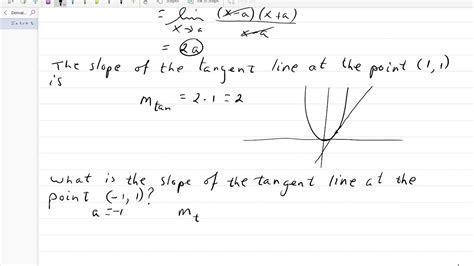 Derivat...
= lim (x-a)(x+a)
x→a x-a
= 2a
The slope of the tangent line at the point (1,1)
is
m_tan = 2·1 = 2
What is the slope of the tangent line at the
point (-1,1)?
a=-1 m_t